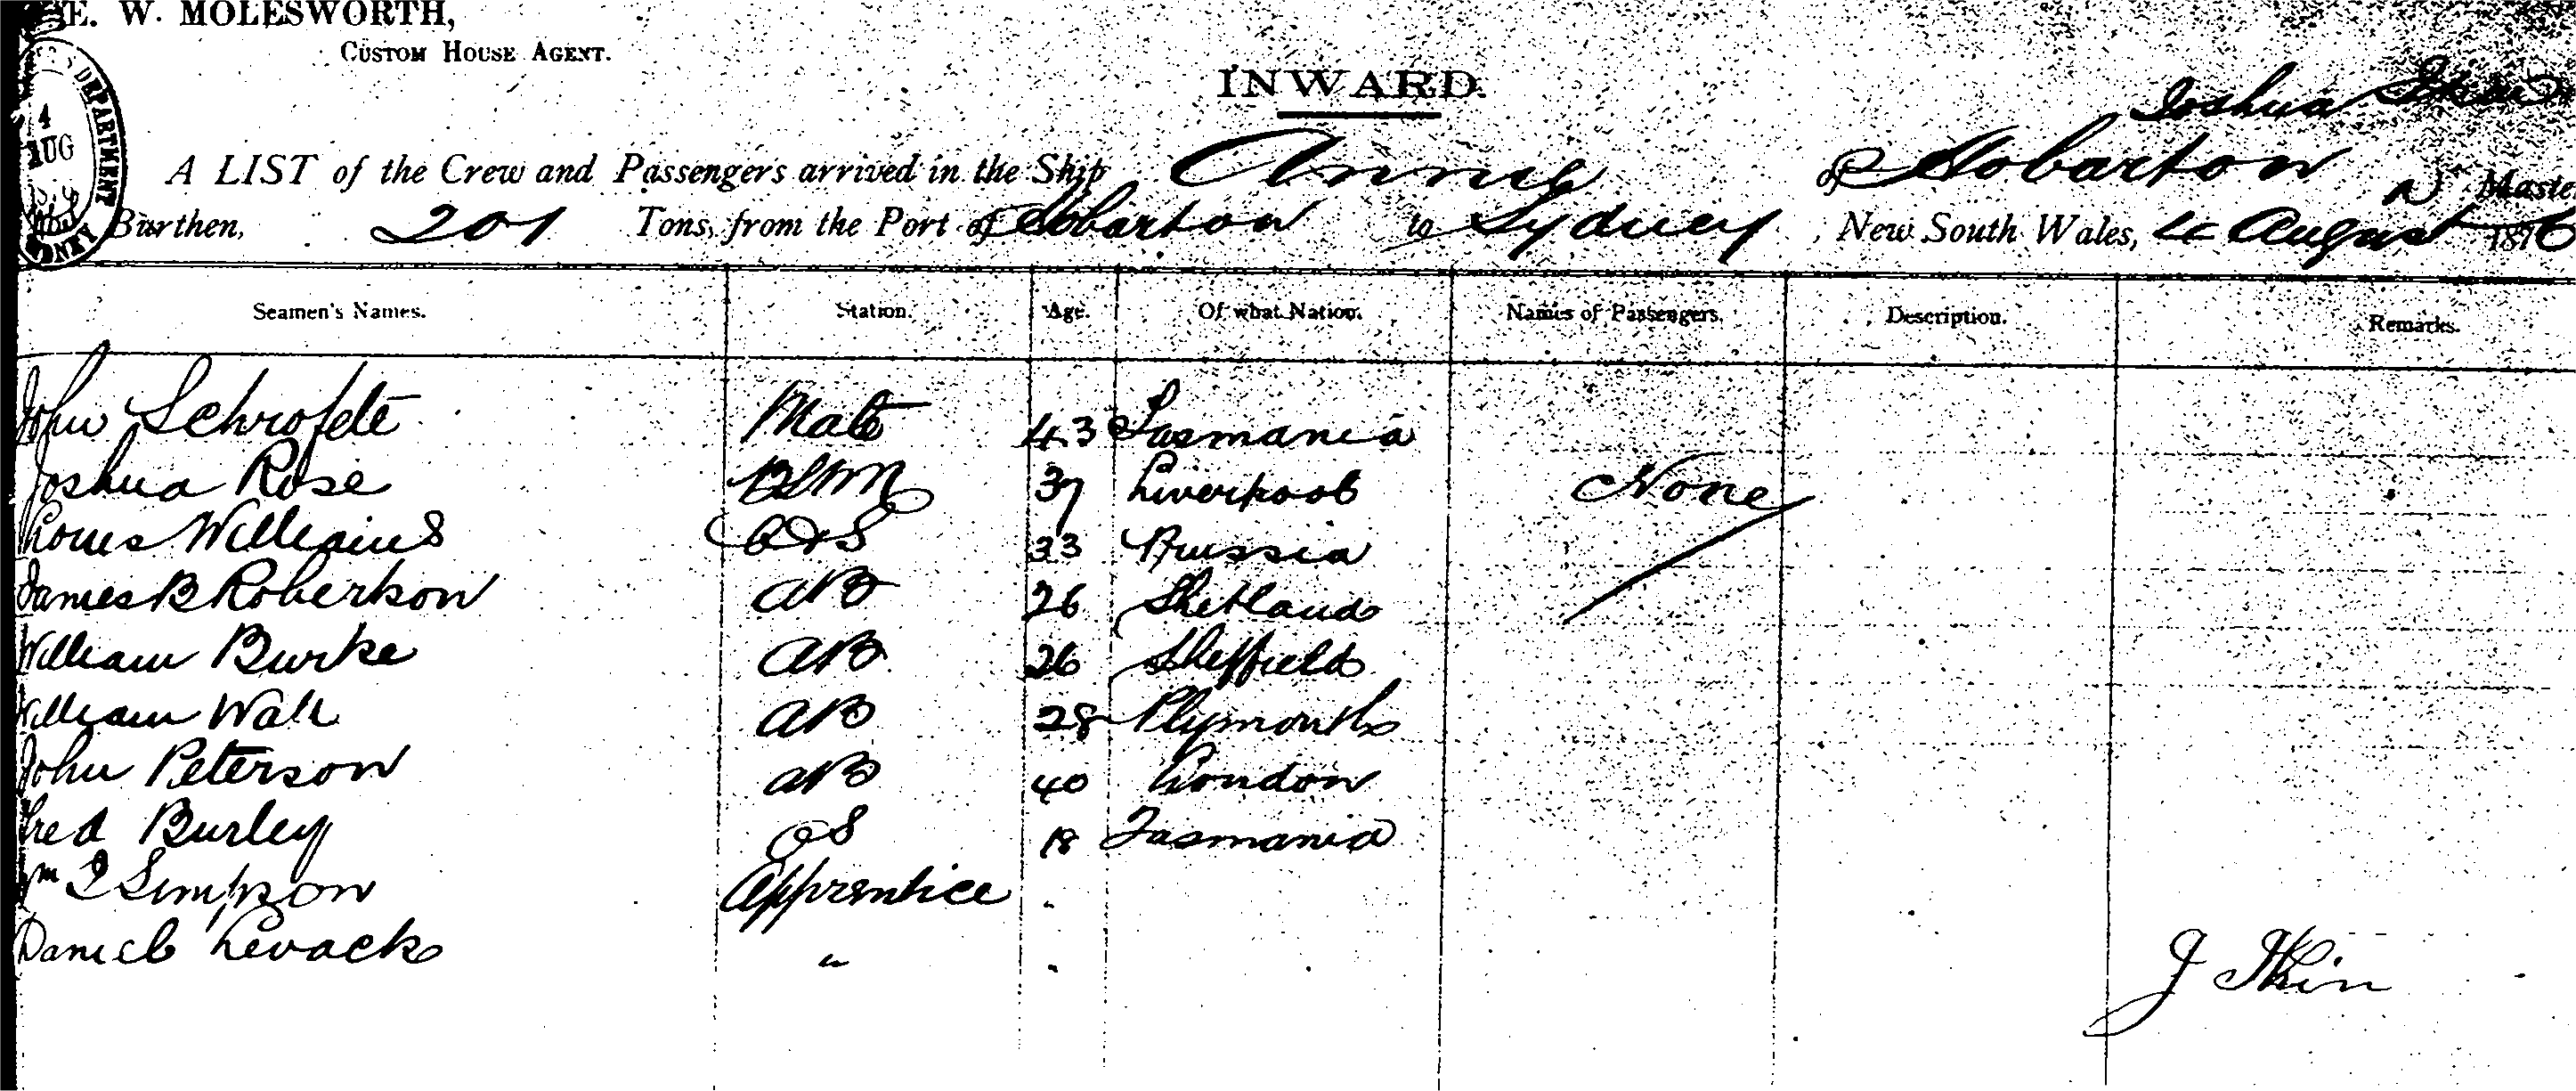 E. W. MOLESWORTH,
CUSTOM HOUSE AGENT.
INWARD.
DEPARTMENT
4
AUG
Joshua
A LIST of the Crew and Passengers arrived in the Ship Annie of Hobarton Maste
Burthen, 201 Tons, from the Port of Hobarton to Sydney New South Wales, 4 August 1876
Seamen's Names. Station. Age. Of what Nation. Names of Passengers. Description. Remarks.
John Mate 43 Tasmania
Joshua Rose BSWN 37 Liverpool None
Williams C&S 33 Prussia
James B Robertson AB 26 Shetland
William Burke AB 26 Sheffield
William Wall AB 28 Plymouth
John Peterson AB 40 London
Fred Burley OS 18 Tasmania
Wm Simpson Apprentice "
Daniel Levack " "
J